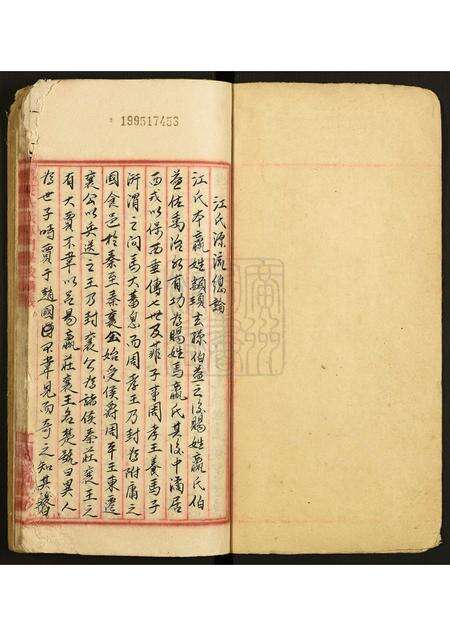 199517453
江氏源流總論
江氏本嬴姓顓頊玄孫伯益之後賜姓嬴氏伯
益佐禹治水有功為賜姓焉嬴氏其後中潏居
西戎以保西垂傳七世及菲子事周孝王養馬于
汧渭之间馬大蕃息而周孝王乃封為附庸之
國食邑於秦至秦襄公始受侯爵周平王東遷
襄公以兵送之王乃封襄公為諸侯秦莊襄王之
有大賈不韋以呂易嬴莊襄王名楚號曰異人
為世子時賈于趙國不韋見而奇之知其